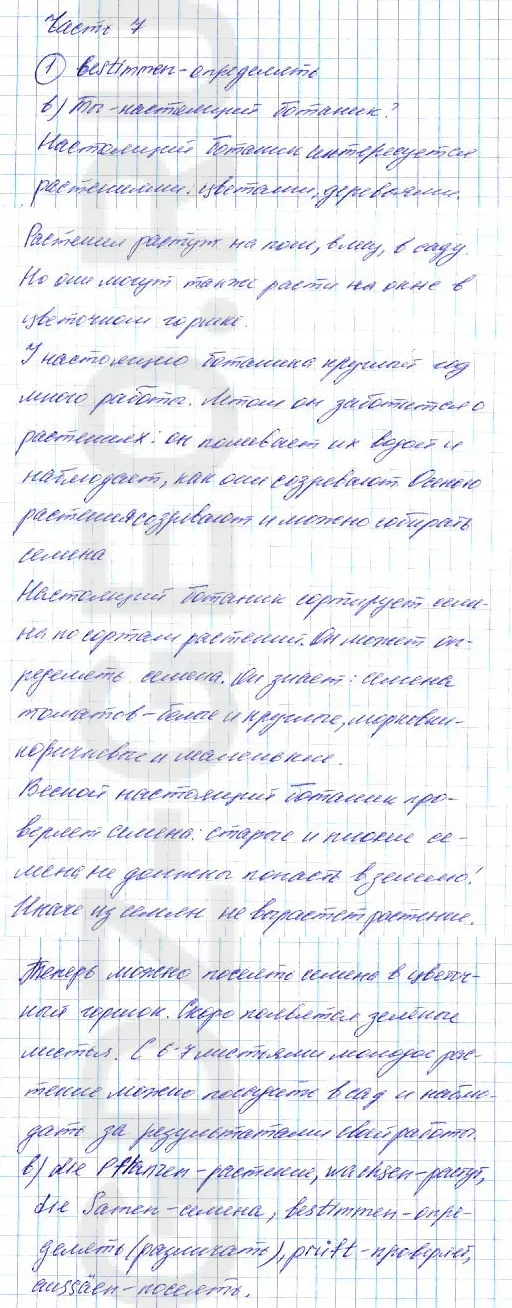 Часть 7
① bestimmen - определять
b) Ты - настоящий ботаник?
Настоящий ботаник интересуется
растениями: цветами, деревьями.
Растения растут на поле, в лесу, в саду.
Но они могут также расти на окне в
цветочном горшке.
У настоящего ботаника круглый год
много работы. Летом он заботится о
растениях: он поливает их водой и
наблюдает, как они созревают. Осенью
растения созревают и можно собирать
семена.
Настоящий ботаник сортирует семе-
на по сортам растений. Он может оп-
ределять семена. Он знает: семена
томатов - белые и круглые, моркови -
коричневые и маленькие.
Весной настоящий ботаник про-
веряет семена: старые и плохие се-
мена не должны попасть в землю!
Иначе из семян не вырастет растение.
Теперь можно посеять семена в цветоч-
ный горшок. Скоро появятся зелёные
листья. С 6-7 листьями молодое рас-
тение можно посадить в сад и наблю-
дать за результатами своей работы.
b) die Pflanzen - растение, wachsen - растут,
die Samen - семена, bestimmen - опре-
делять (различать), prüft - проверяет,
aussäen - посеять.
GDZ-GEO.RU